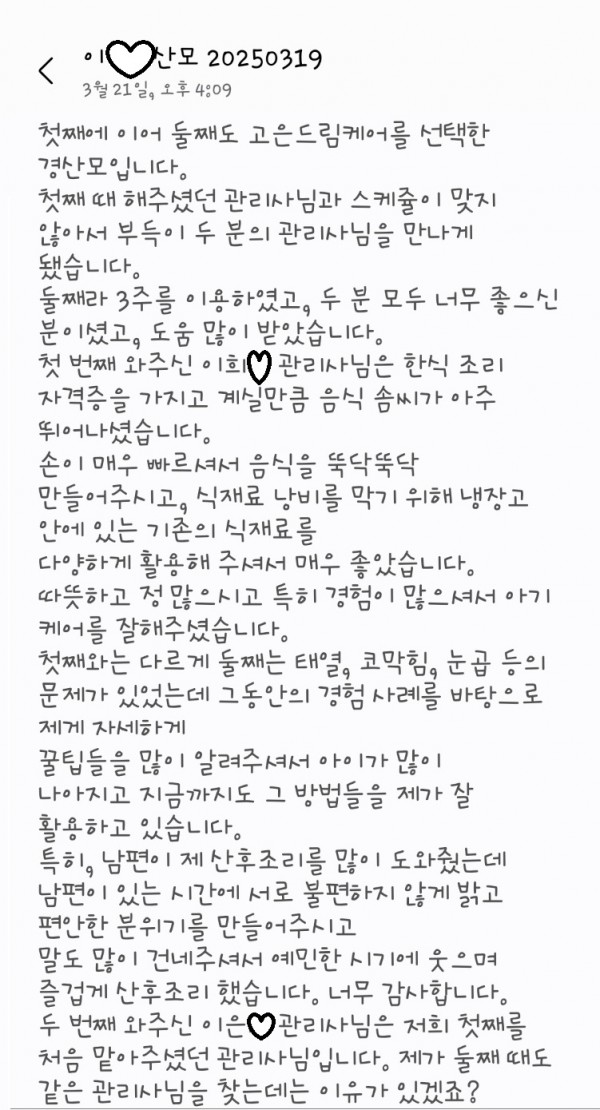 이♡산모 20250319
3월 21일, 오후 4:09
첫째에 이어 둘째도 고은드림케어를 선택한
경산모입니다.
첫째 때 해주셨던 관리사님과 스케쥴이 맞지
않아서 부득이 두 분의 관리사님을 만나게
됐습니다.
둘째라 3주를 이용하였고, 두 분 모두 너무 좋으신
분이셨고, 도움 많이 받았습니다.
첫 번째 와주신 이희♡ 관리사님은 한식 조리
자격증을 가지고 계실만큼 음식 솜씨가 아주
뛰어나셨습니다.
손이 매우 빠르셔서 음식을 뚝닥뚝닥
만들어주시고, 식재료 낭비를 막기 위해 냉장고
안에 있는 기존의 식재료를
다양하게 활용해 주셔서 매우 좋았습니다.
따뜻하고 정 많으시고 특히 경험이 많으셔서 아기
케어를 잘해주셨습니다.
첫째와는 다르게 둘째는 태열, 코막힘, 눈곱 등의
문제가 있었는데 그동안의 경험 사례를 바탕으로
제게 자세하게
꿀팁들을 많이 알려주셔서 아이가 많이
나아지고 지금까지도 그 방법들을 제가 잘
활용하고 있습니다.
특히, 남편이 제 산후조리를 많이 도와줬는데
남편이 있는 시간에 서로 불편하지 않게 밝고
편안한 분위기를 만들어주시고
말도 많이 건네주셔서 예민한 시기에 웃으며
즐겁게 산후조리 했습니다. 너무 감사합니다.
두 번째 와주신 이은♡관리사님은 저희 첫째를
처음 맡아주셨던 관리사님입니다. 제가 둘째 때도
같은 관리사님을 찾는데는 이유가 있겠죠?